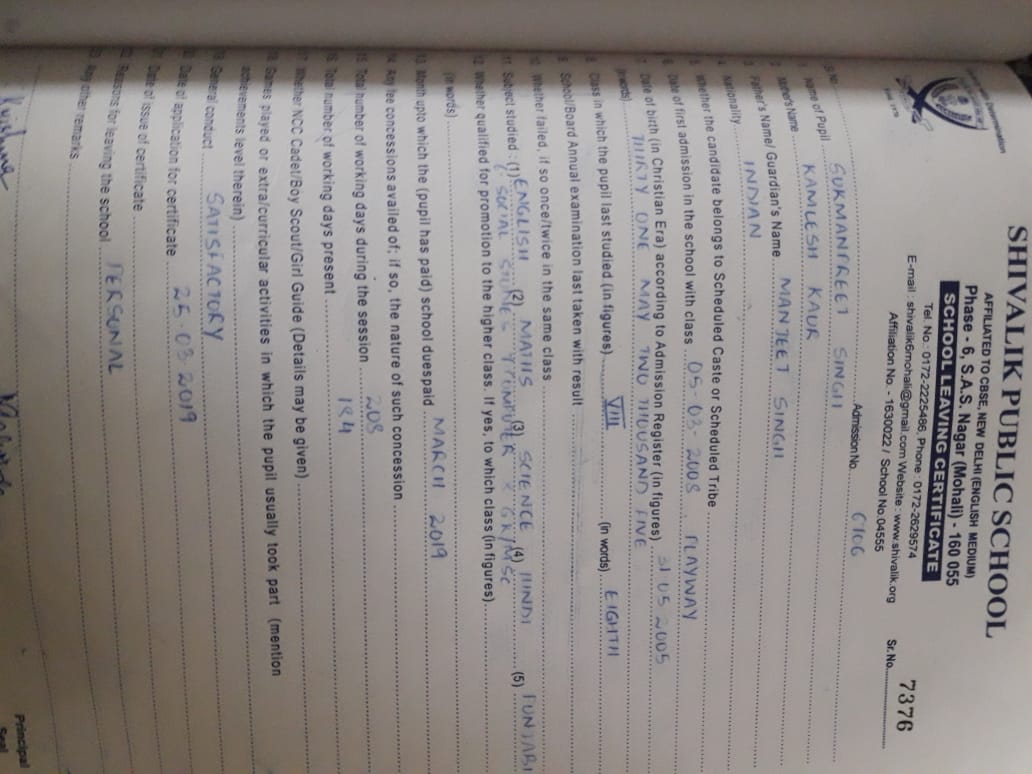 SHIVALIK PUBLIC SCHOOL
AFFILIATED TO CBSE, NEW DELHI (ENGLISH MEDIUM)
Phase - 6, S.A.S. Nagar (Mohali) - 160 055
SCHOOL LEAVING CERTIFICATE
Tel. No.: 0172-2225486, Phone : 0172-2629574
E-mail : shivalik6mohali@gmail.com Website : www.shivalik.org
Affiliation No. - 1630022 / School No.04555
Sr. No. 7376
Admission No. 6106
1. Name of Pupil SUKMANPREET SINGH
2. Mother's Name KAMLESH KAUR
3. Father's Name/ Guardian's Name MANJEET SINGH
4. Nationality INDIAN
5. Whether the candidate belongs to Scheduled Caste or Scheduled Tribe
6. Date of first admission in the school with class 05-03-2008 PLAYWAY
7. Date of birth (in Christian Era) according to Admission Register (in figures) 31 05 2005
(in words) THIRTY ONE MAY TWO THOUSAND FIVE
8. Class in which the pupil last studied (in figures) VIII (in words) EIGHTH
9. School/Board Annual examination last taken with result
10. Whether failed, if so once/twice in the same class
11. Subject studied : (1) ENGLISH (2) MATHS (3) SCIENCE (4) HINDI (5) PUNJABI
SOCIAL STUDIES COMPUTER & GK/MSC
12. Whether qualified for promotion to the higher class. If yes, to which class (in figures)
(in words)
13. Month upto which the (pupil has paid) school dues paid MARCH 2019
14. Any fee concessions availed of; if so, the nature of such concession
15. Total number of working days during the session 208
16. Total number of working days present 184
17. Whether NCC Cadet/Boy Scout/Girl Guide (Details may be given)
18. Games played or extra/curricular activities in which the pupil usually took part (mention
achievements level therein)
19. General conduct SATISFACTORY
20. Date of application for certificate 25-03 2019
21. Date of issue of certificate
22. Reasons for leaving the school PERSONAL
23. Any other remarks
Principal
Seal